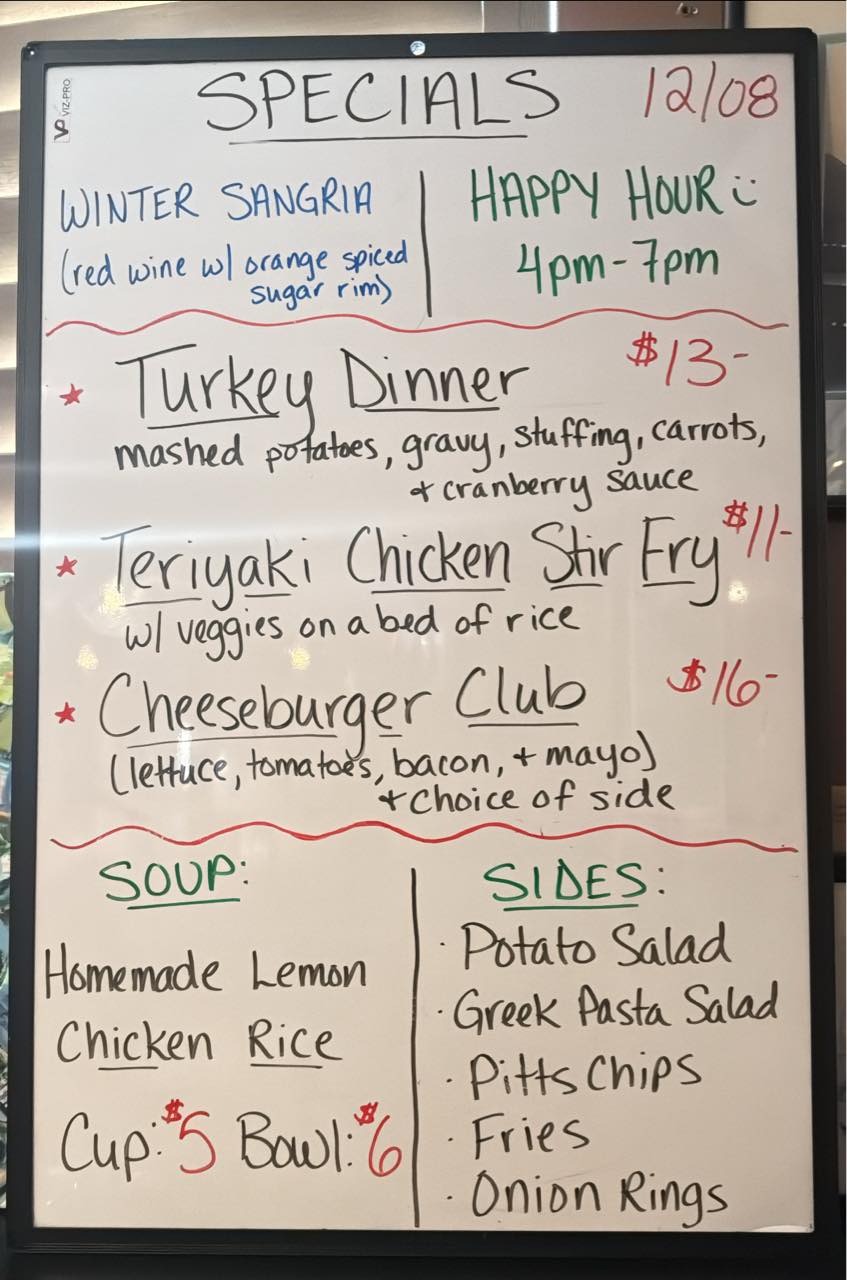 VIZ-PRO
SPECIALS 12/08
WINTER SANGRIA
(red wine w/ orange spiced
sugar rim)
HAPPY HOUR :)
4pm-7pm
★ Turkey Dinner $13-
mashed potatoes, gravy, stuffing, carrots,
+ cranberry sauce
★ Teriyaki Chicken Stir Fry $11-
w/ veggies on a bed of rice
★ Cheeseburger Club $16-
(lettuce, tomatoes, bacon, + mayo)
+ choice of side
SOUP:
Homemade Lemon
Chicken Rice
Cup: $5 Bowl: $6
SIDES:
· Potato Salad
· Greek Pasta Salad
· Pitts Chips
· Fries
· Onion Rings